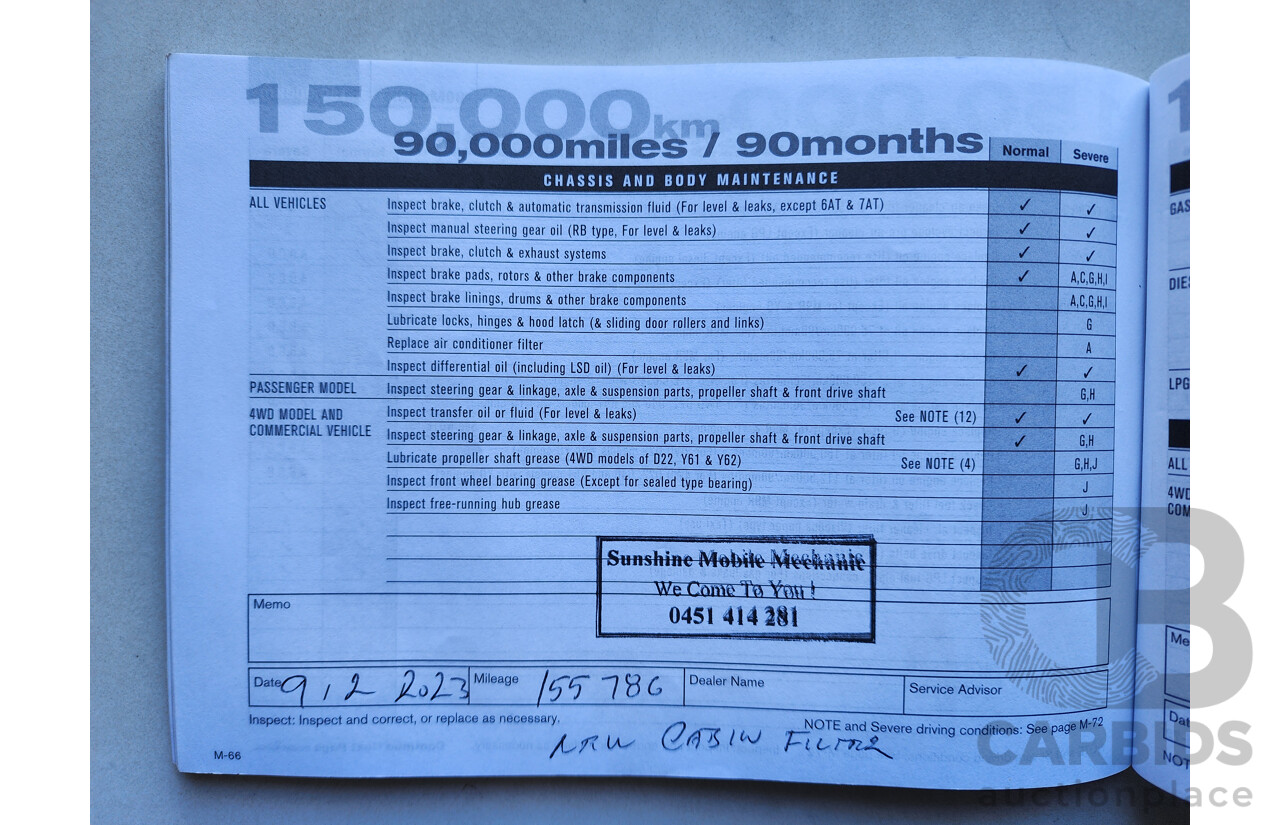 150,000km
90,000miles / 90months
Normal Severe
CHASSIS AND BODY MAINTENANCE
ALL VEHICLES Inspect brake, clutch & automatic transmission fluid (For level & leaks, except 6AT & 7AT) ✓ ✓
Inspect manual steering gear oil (RB type, For level & leaks) ✓ ✓
Inspect brake, clutch & exhaust systems ✓ ✓
Inspect brake pads, rotors & other brake components ✓ A,C,G,H,I
Inspect brake linings, drums & other brake components A,C,G,H,I
Lubricate locks, hinges & hood latch (& sliding door rollers and links) G
Replace air conditioner filter A
Inspect differential oil (including LSD oil) (For level & leaks) ✓ ✓
PASSENGER MODEL Inspect steering gear & linkage, axle & suspension parts, propeller shaft & front drive shaft G,H
4WD MODEL AND Inspect transfer oil or fluid (For level & leaks) See NOTE (12) ✓ ✓
COMMERCIAL VEHICLE Inspect steering gear & linkage, axle & suspension parts, propeller shaft & front drive shaft ✓ G,H
Lubricate propeller shaft grease (4WD models of D22, Y61 & Y62) See NOTE (4) G,H,J
Inspect front wheel bearing grease (Except for sealed type bearing) J
Inspect free-running hub grease J
Sunshine Mobile Mechanic
We Come To You !
0451 414 281
Memo
Date 9,2 2023 Mileage 155786 Dealer Name Service Advisor
Inspect: Inspect and correct, or replace as necessary. NOTE and Severe driving conditions: See page M-72
CABIN FILTER
M-66
GAS
LPG
ALL
4WD
COM
Me
Dat
NOT
CARBIDS
auctionplace